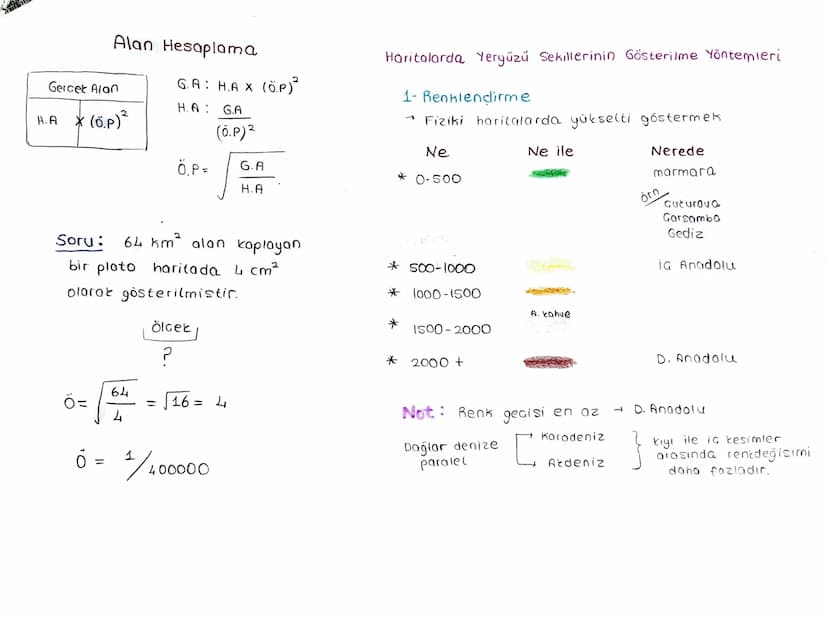 Alan Hesaplama
Gercek Alan
H.A x (Ö.P)²
G.A : H.A x (Ö.P)²
H.A : G.A
(Ö.P)²
Ö.P = √ G.A
H.A
Soru: 64 km² alan kaplayan
bir plato haritada 4 cm²
olarak gösterilmistir.
ölcek
?
Ö = √ 64
4
= √16 = 4
Ö = 1/400000
Haritalarda Yeryüzü Sekillerinin Gösterilme Yöntemleri
1- Renklendirme
→ Fiziki haritalarda yükselti göstermek
Ne Ne ile Nerede
* 0-500 marmara
örn/ Cuturova
Carsamba
Gediz
* 500-1000 ic Anadolu
* 1000-1500
* 1500-2000 A. kahve
* 2000 + D. Anadolu
Not : Renk gecisi en az → D. Anadolu
Dağlar denize
paralel
Karadeniz
Akdeniz
kıyı ile ic kesimler
arasında renkdeğisimi
daha fazladır.